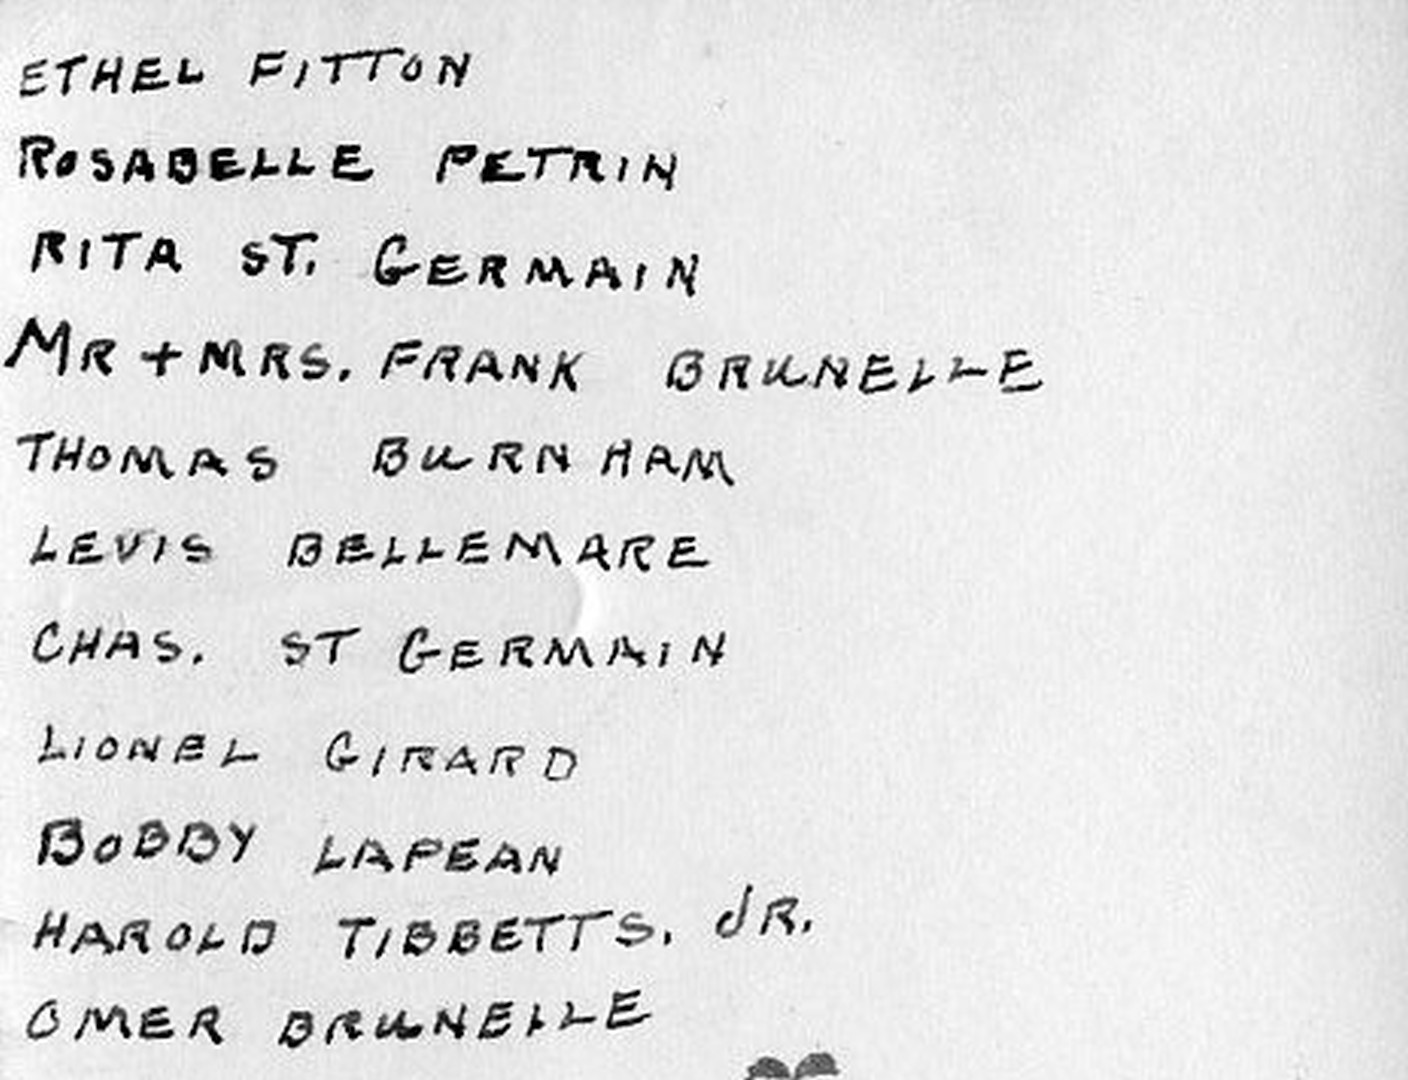 ETHEL FITTON
ROSABELLE PETRIN
RITA ST. GERMAIN
MR + MRS. FRANK BRUNELLE
THOMAS BURNHAM
LEVIS BELLEMARE
CHAS. ST GERMAIN
LIONEL GIRARD
BOBBY LAPEAN
HAROLD TIBBETTS. JR.
OMER BRUNELLE